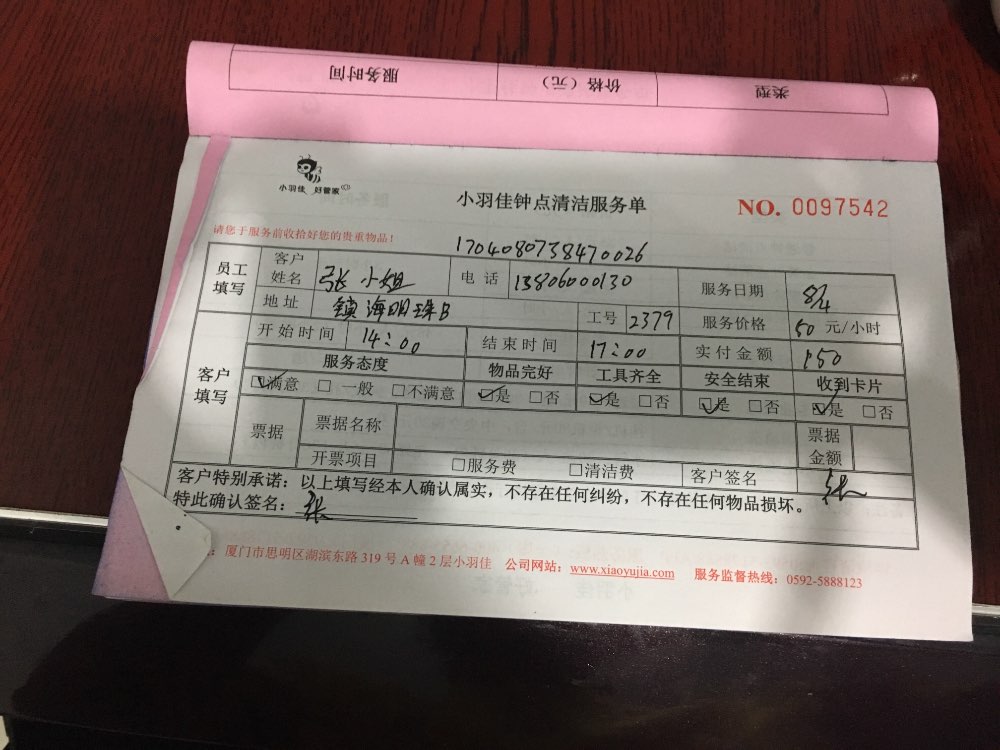 类型 价格（元） 服务时间
小羽佳 好管家
小羽佳钟点清洁服务单
NO. 0097542
请您于服务前收拾好您的贵重物品！
1704080738470026
员工填写 客户姓名 张小姐 电话 13806000130 服务日期 8/4
地址 镇海明珠B 工号 2379 服务价格 50 元/小时
客户填写 开始时间 14：00 结束时间 17：00 实付金额 150
服务态度 物品完好 工具齐全 安全结束 收到卡片
☑满意 □一般 □不满意 ☑是 □否 ☑是 □否 ☑是 □否 ☑是 □否
票据 票据名称 票据金额
开票项目 □服务费 □清洁费 客户签名 张
客户特别承诺：以上填写经本人确认属实，不存在任何纠纷，不存在任何物品损坏。
特此确认签名：张
：厦门市思明区湖滨东路 319 号 A 幢 2 层小羽佳 公司网站：www.xiaoyujia.com 服务监督热线：0592-5888123